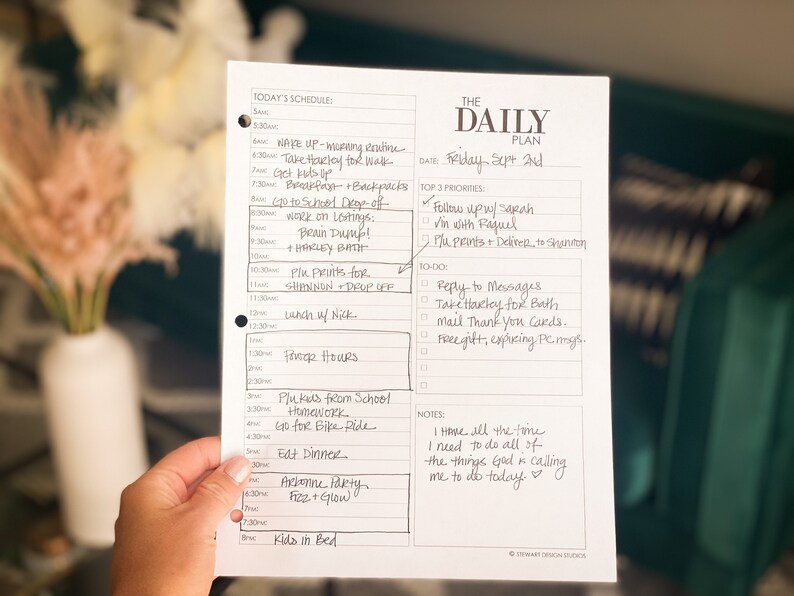 TODAY'S SCHEDULE:
5AM:
5:30AM:
6AM: WAKE UP - morning routine
6:30AM: Take Harley for Walk
7AM: Get kids up
7:30AM: Breakfast + Backpacks
8AM: Go to School Drop-off
8:30AM: WORK on Listings:
9AM: Brain Dump!
9:30AM: + HARLEY BATH
10AM:
10:30AM: P/u PRINTS for
11AM: SHANNON + DROP OFF
11:30AM:
12PM: Lunch w/ Nick
12:30PM:
1PM:
1:30PM: Power Hours
2PM:
2:30PM:
3PM: P/u Kids from School
3:30PM: Homework
4PM: Go for Bike Ride
4:30PM:
5PM: Eat Dinner
:30PM:
PM: Arbonne Party
6:30PM: Fizz + Glow
7PM:
7:30PM:
8PM: Kids in Bed
THE
DAILY
PLAN
DATE: Friday, Sept 2nd
TOP 3 PRIORITIES:
Follow up w/ Sarah
Vin with Raquel
P/u prints + Deliver to Shannon
TO-DO:
Reply to Messages
Take Harley for Bath
Mail Thank You Cards.
Free gift, expiring PC msgs.
NOTES:
I have all the time
I need to do all of
the things God is calling
me to do today. ♡
© STEWART DESIGN STUDIOS